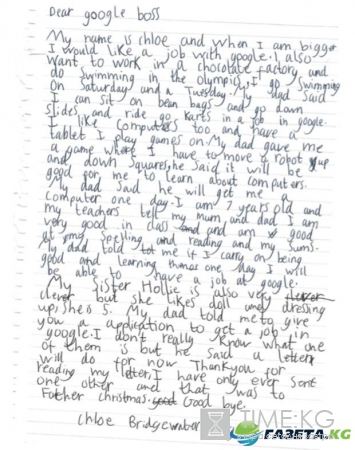 Dear google boss
My name is Chloe and when I am bigger
I would like a job with google. I also
want to work in a chocolate factory and
do swimming in the olympics. I go Swimming
on Saturday and a Tuesday. My dad said
I can sit on bean bags and go down
slides and ride go karts in a job in google.
I like computers too and have a
tablet I play games on. My dad gave me
a game where I have to move a robot up
and down squares, he said it will be
good for me to learn about computers.
My dad said he will get me a
computer one day. I am 7 years old and
my teachers tell my mum and dad I am
very good in class and am good
at my spelling and reading and my sums.
My dad told me if I carry on being
good and learning things one day I will
be able to have a job at google.
My Sister Hollie is also very
clever but she likes doll and dressing
up, she is 5. My dad told me to give
you a application to get a job in
google. I don't really know what one
of them is but he said a letter
will do for now. Thankyou for
reading my letter, I have only ever sent
one other and that was to
Father christmas. Good bye.
Chloe Bridgewater
TIME.KG
ГАЗЕТА.KG